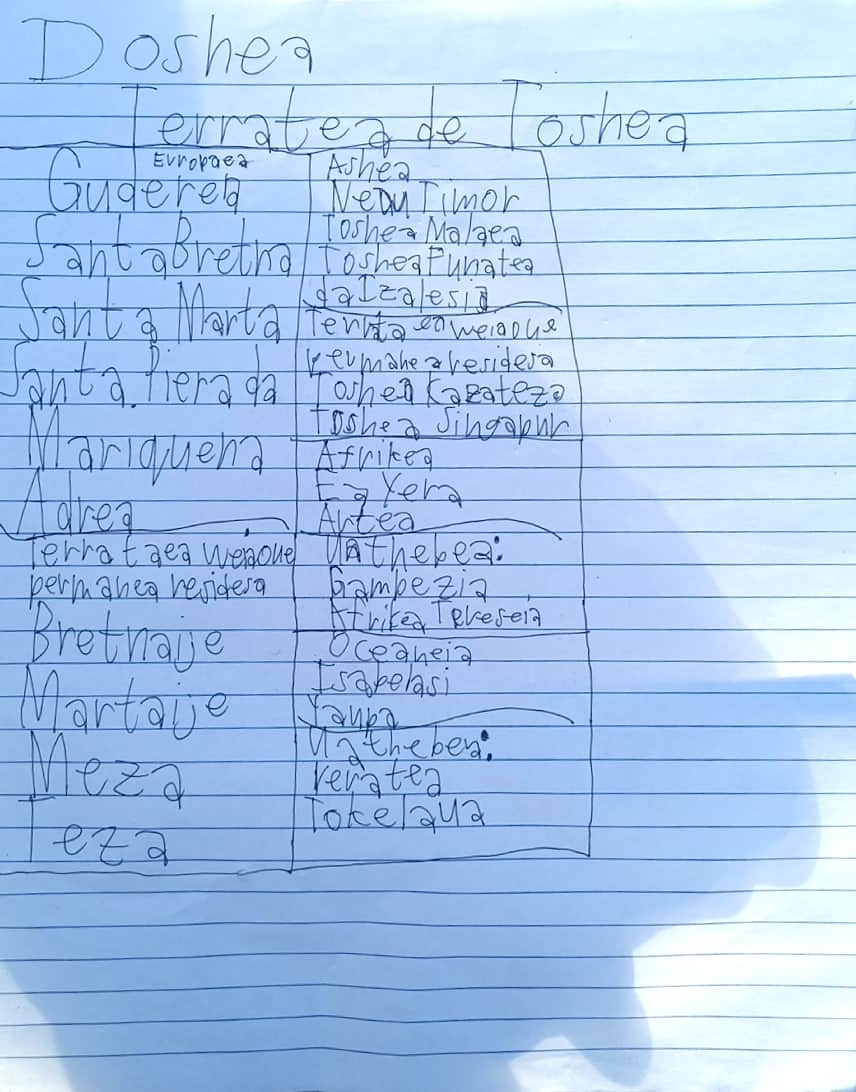 Doshea
Terratea de Toshea
Europaea
Guderea
Santa Bretna
Santa Marta
Santa Piera da
Mariquena
Adrea
Terrataea weiaoue
permanea residera
Bretnaije
Martaije
Meza
Teza
Ashea
Neau Timor
Toshea Malaea
Toshea Punatea
da Izalesia
Terrata ea weiaoue
permanea residera
Toshea Kazateza
Toshea Singapur
Afrikea
Ea Yera
Artea
Uathebea:
Gambezia
Afrikea
Oceaneia
Isaberasi
Yaupa
Uathebea:
Veratea
Tokelaua